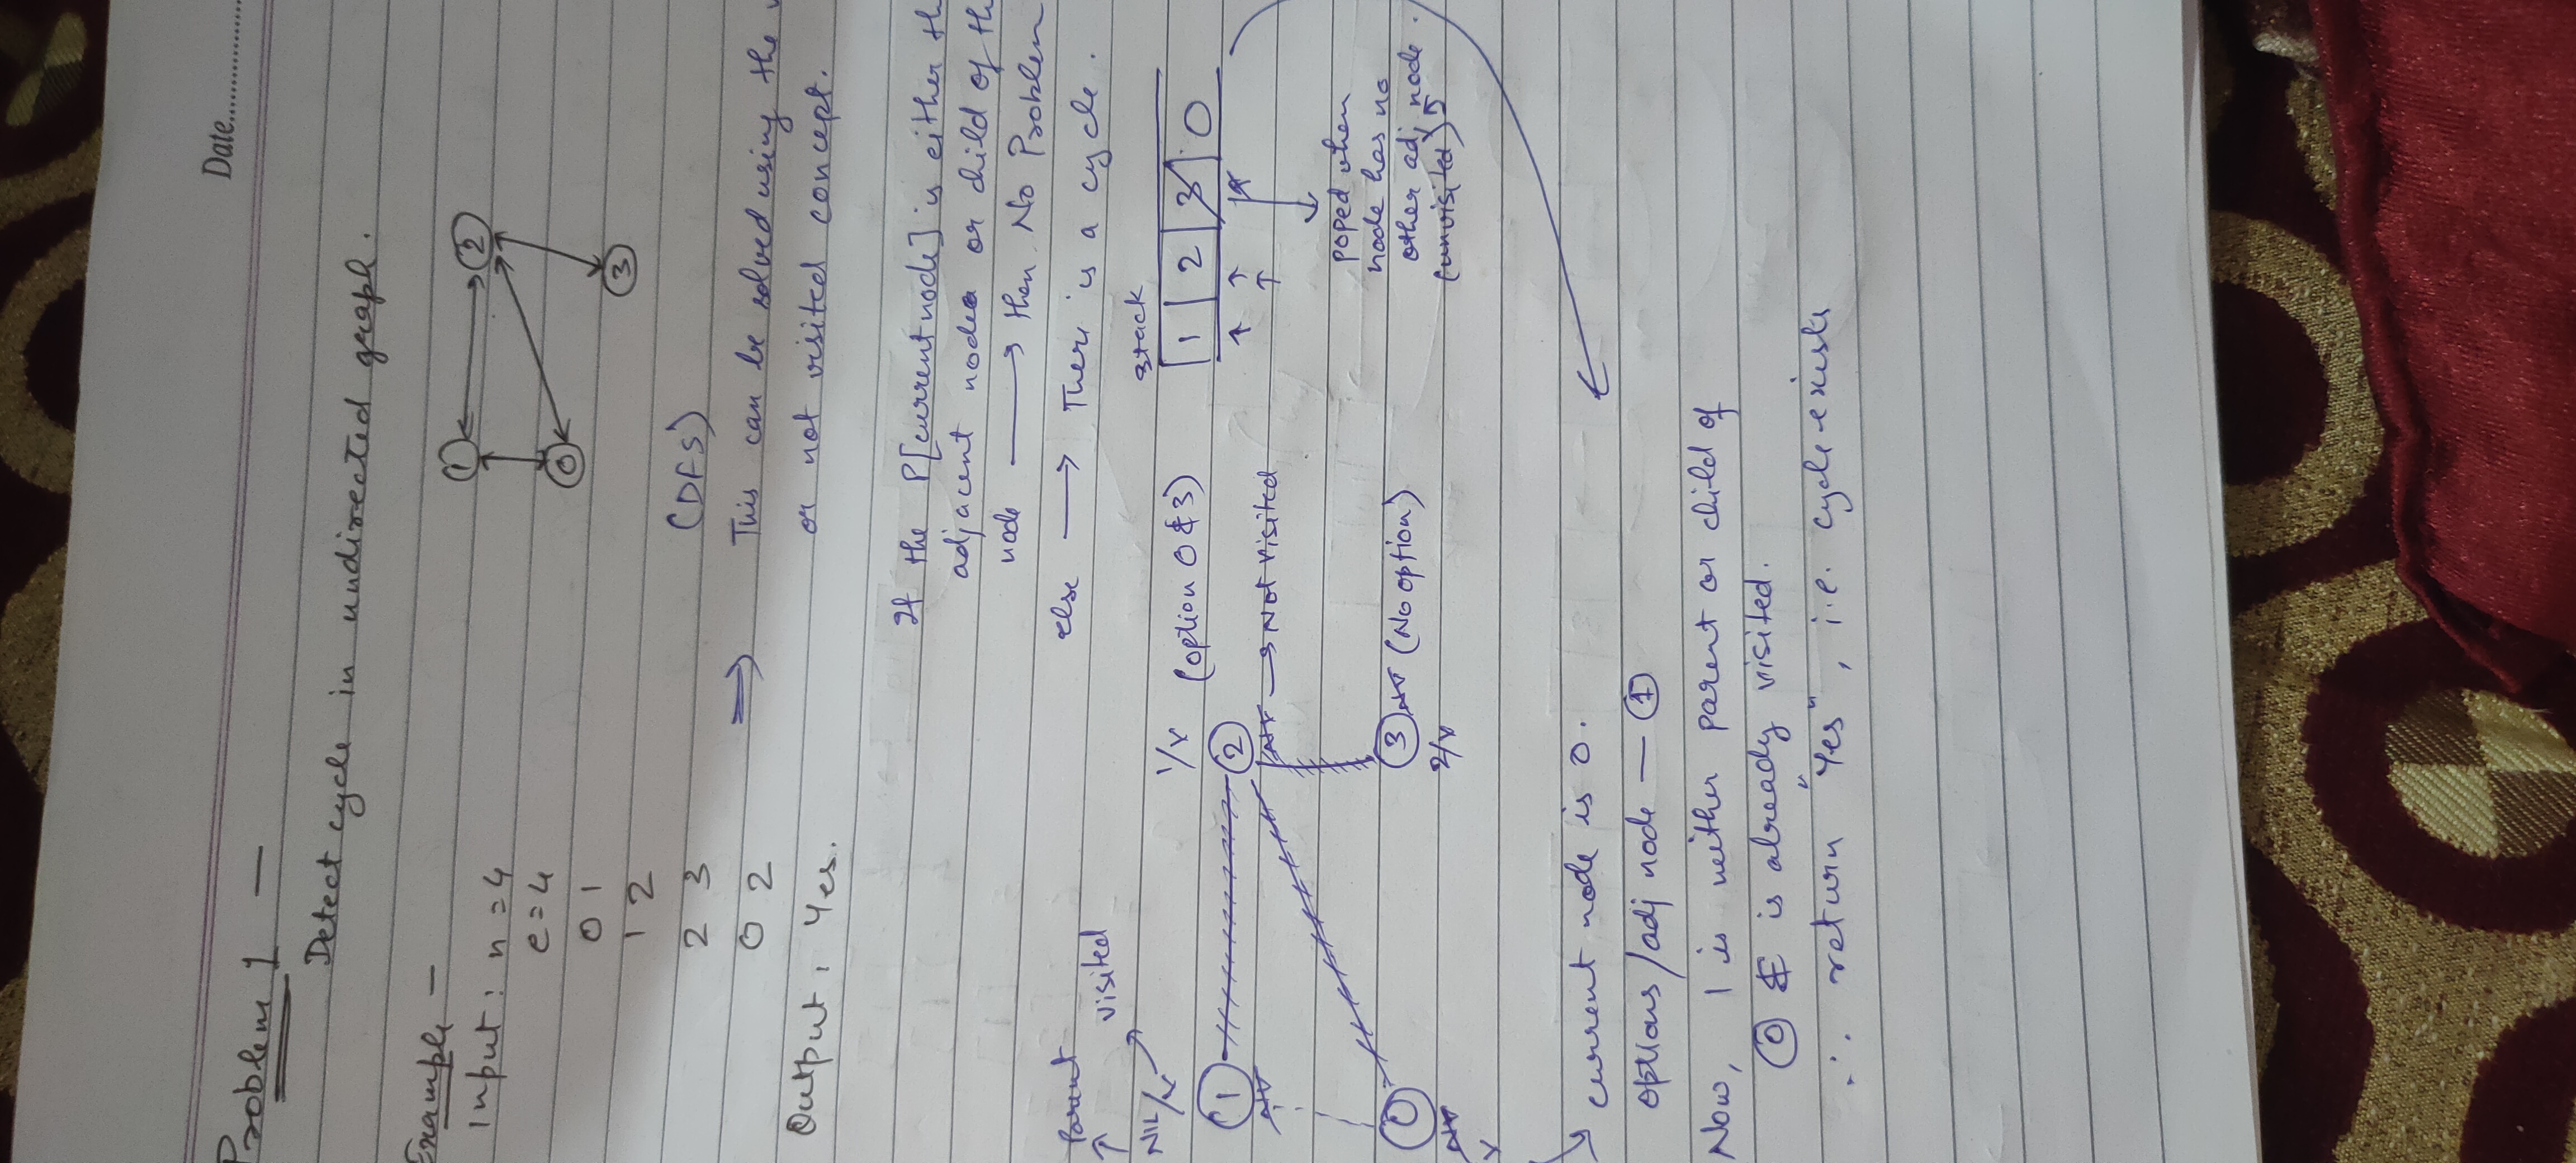 Date
Problem 1 —
Detect cycle in undirected graph.
Example —
Input: n = 4
e = 4
0 1
1 2
2 3
0 2
Output: Yes.
1
2
0
3
(DFS)
⇒ This can be solved using the
or not visited concept.
If the P[currentnode] is either th
adjacent nodes or child of th
node → then No Problem
else → There is a cycle.
Parent
visited
NIL/v
1/v
1
2
(option 0 & 3)
→ Not visited
3
(No option)
2/v
0
stack
1 2 3 0
Poped when
node has no
other adj node.
(unvisited)
current node is 0.
options/adj node — 1
Now, 1 is neither parent or child of
0 & is already visited.
∴ return "Yes", i.e. cycle exists